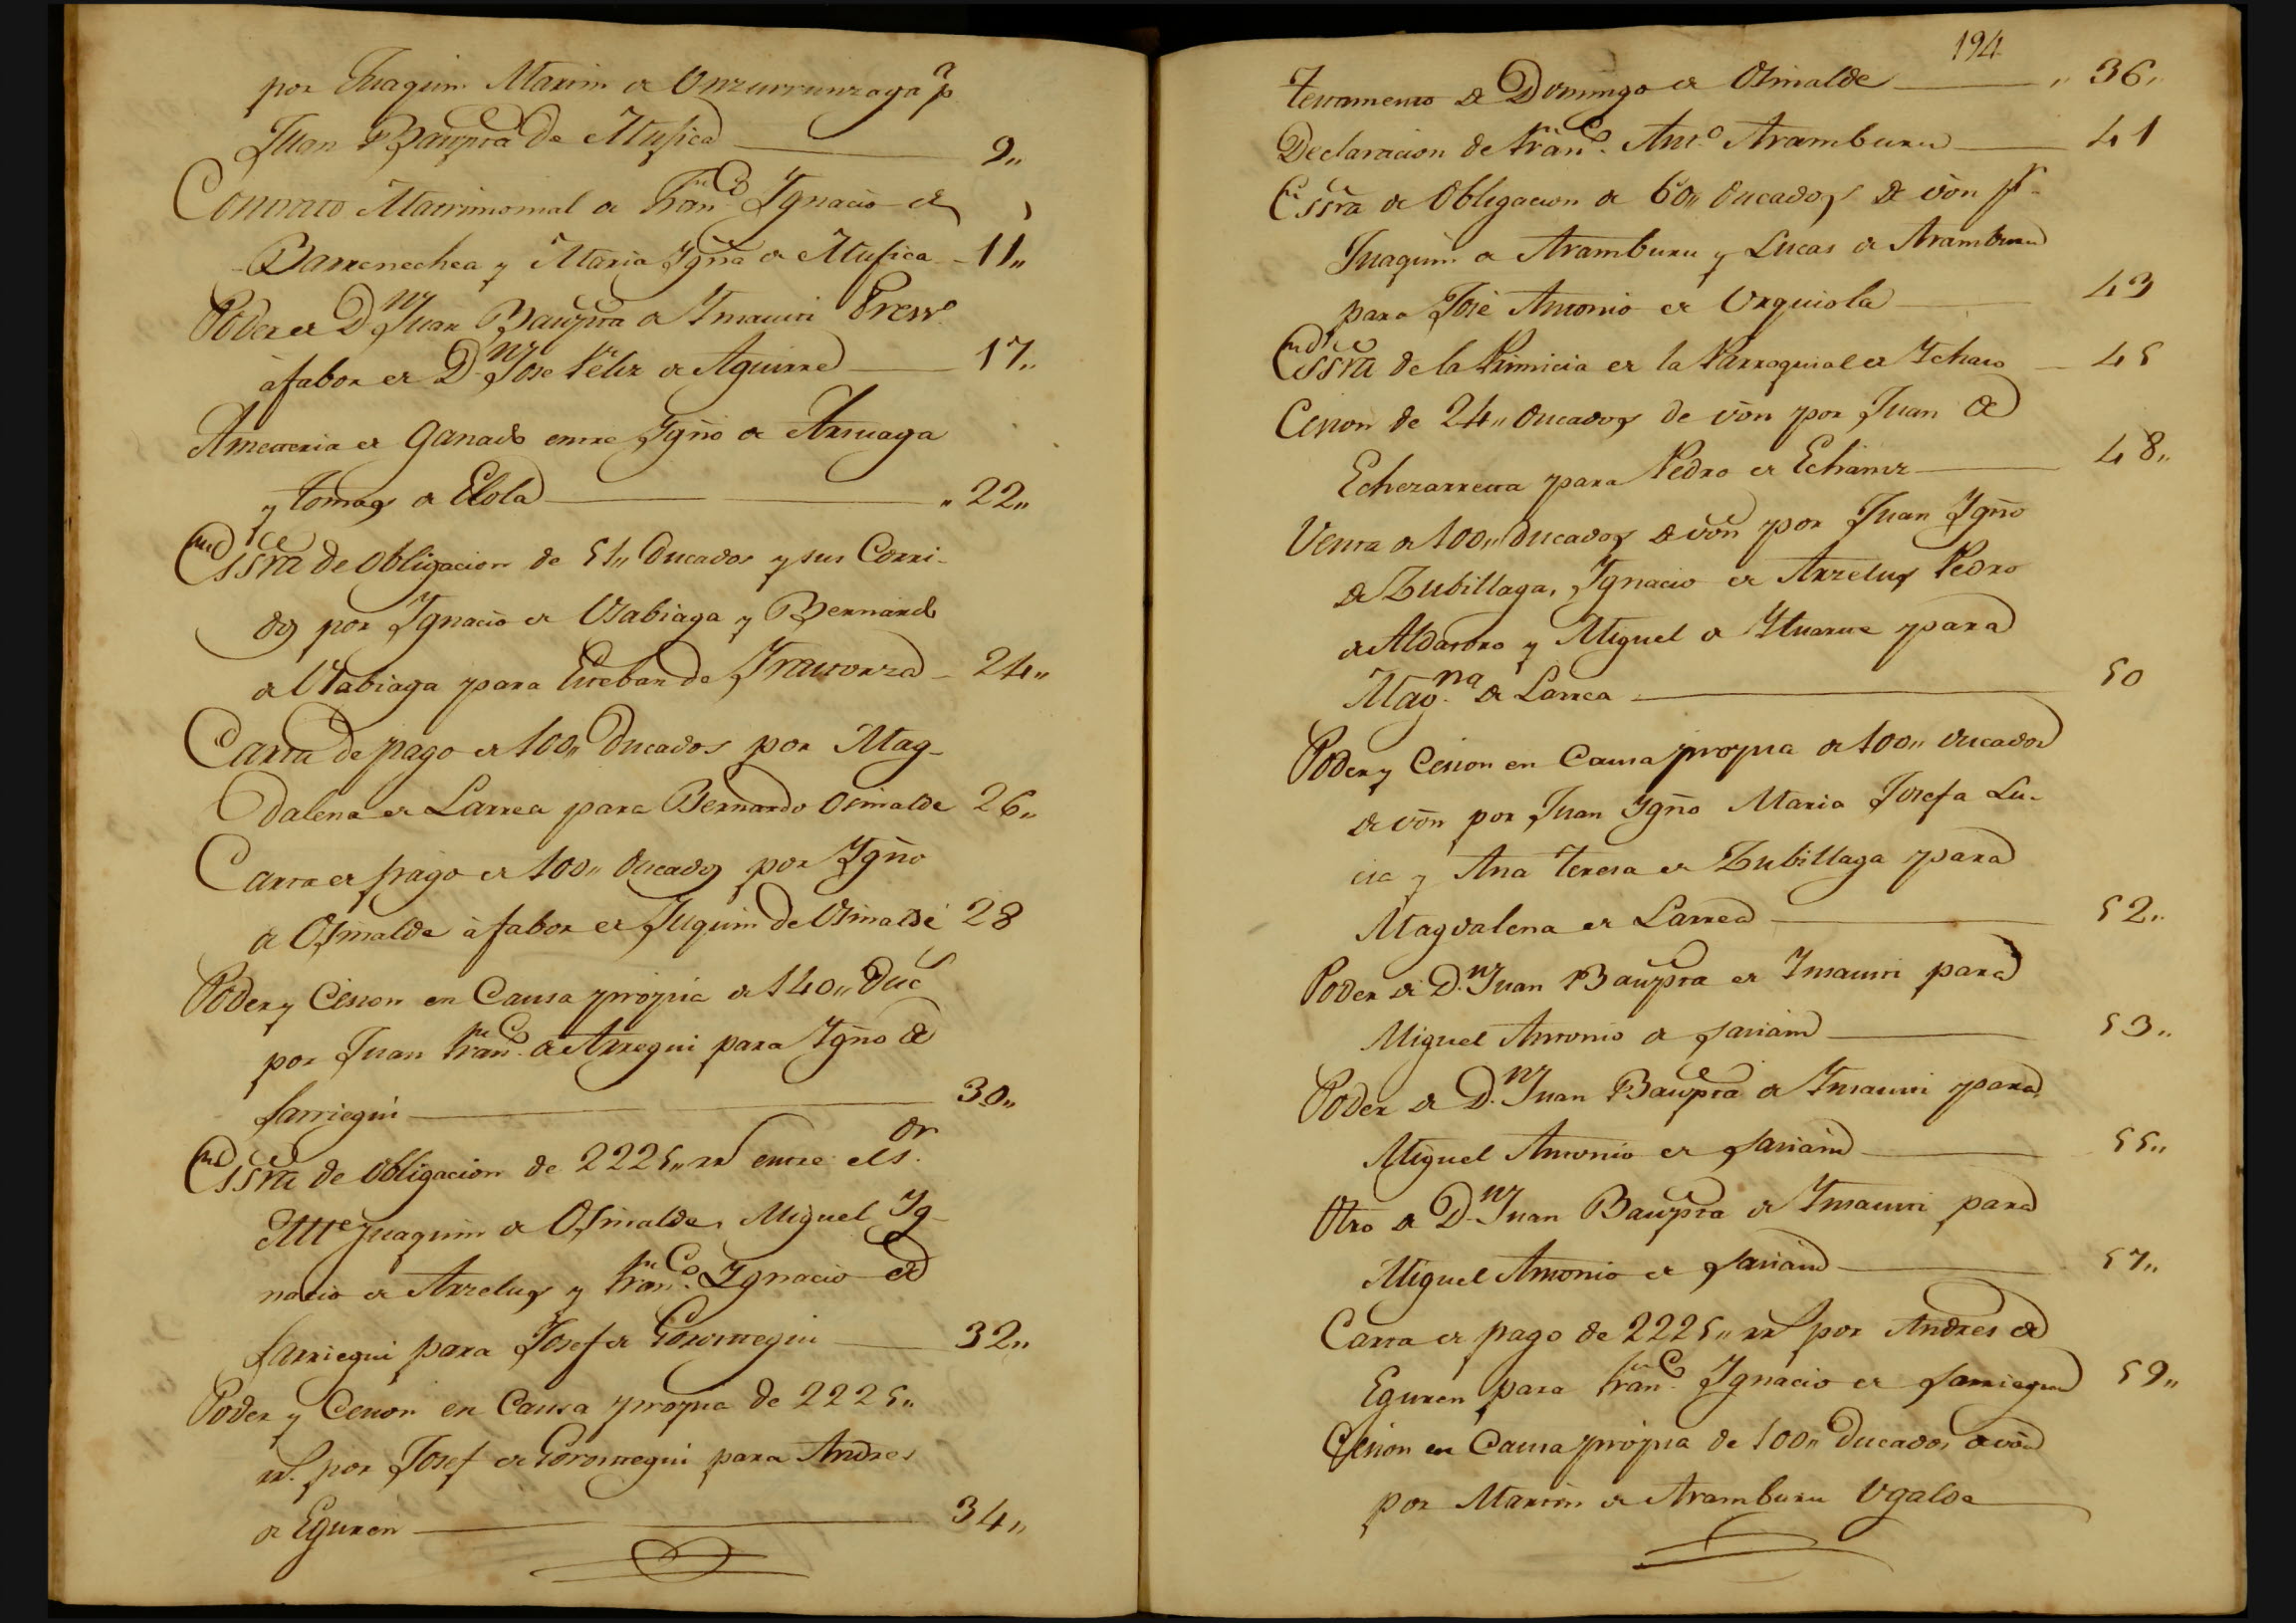 por Juaquin Martin de Unzurrunzaga pª
Juan Bauptta de Mugica 9,,
Contrato Matrimonial de Franco Ygnacio de
Barrenechea y Maria Ygña de Mugica 11,,
Poder de Dn Juan Bauptta de Ymaurri Presvo
à fabor de Dn Jose Felix de Aguirre 17,,
Ametteria de Ganado entre Ygño de Arruaga
y Tomas de Elola 22,,
Essra de obligacion de 51,, Ducados y sus Corri-
dos por Ygnacio de Usabiaga y Bernardo
de Usabiaga para Esteban de Yrastorza 24,,
Carta de pago de 100,, Ducados por Mag-
dalena de Larrea para Bernardo Osinalde 26,,
Carta de pago de 100,, Ducados por Ygño
de Osinalde à fabor de Juquin de Osinalde 28
Poder y Cesion en Causa propia de 140,, Ducs
por Juan Franco de Arregui para Ygño de
Sarriegui 30,,
Essra de obligacion de 2225,, rs entre el Sor
Alle Juaquin de Osinalde, Miguel Yg-
nacio de Arzelus y Franco Ygnacio de
Sarriegui para Josef de Gorostegui 32,,
Poder y Cesion en Causa propia de 2225,,
rs. por Josef de Gorostegui para Andres
de Eguren 34,,
194
Testamento de Domingo de Osinalde 36,,
Declaracion de Franco Anto Aramburu 41
Essra de Obligacion de 60,, ducados de von pr
Juaquin de Aramburu y Lucas de Aramburu
para José Antonio de Urquiola 43
Essra de la Primicia de la Parroquial de Ychaso 45
Cesion de 24,, ducados de von por Juan de
Echezarreta para Pedro de Echaniz 48,,
Venta de 100,, ducados de von por Juan Ygño
de Zubillaga, Ygnacio de Arzelus Pedro
de Aldasoro y Miguel de Ytuarte para
Magna de Larrea 50
Poder y Cesion en Causa propia de 100,, ducados
de von por Juan Ygño Maria Josefa Lu-
cia y Ana Teresa de Zubillaga para
Magdalena de Larrea 52,,
Poder de Dn Juan Bauptta de Ymaurri para
Miguel Antonio de Sasiain 53,,
Poder de Dn Juan Bauptta de Ymaurri para
Miguel Antonio de Sasiain 55,,
Otro de Dn Juan Bauptta de Ymaurri para
Miguel Antonio de Sasiain 57,,
Carta de pago de 2225,, rs por Andres de
Eguren para Franco Ygnacio de Sarriegui 59,,
Cesion en Causa propia de 100,, Ducados de von
por Martin de Aramburu Ugalde